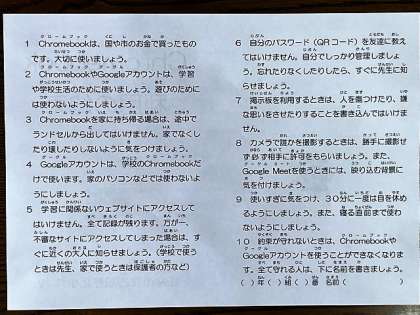 1 Chromebookは、国や市のお金で買ったもの
です。大切に使いましょう。
2 ChromebookやGoogleアカウントは、学習
や学校生活のために使いましょう。遊びのために
は使わないようにしましょう。
3 Chromebookを家に持ち帰る場合は、途中で
ランドセルから出してはいけません。家でなくし
たり壊したりしないように気をつけましょう。
4 Googleアカウントは、学校のChromebookだ
けで使います。家のパソコンなどでは使わないよ
うにしましょう。
5 学習に関係ないウェブサイトにアクセスして
はいけません。全て記録が残ります。万が一、
不審なサイトにアクセスしてしまった場合は、す
ぐに近くの大人に知らせましょう。（学校で使う
ときは先生、家で使うときは保護者の方など）
6 自分のパスワード（QRコード）を友達に教え
てはいけません。自分でしっかり管理しましょ
う。忘れたりなくしたりしたら、すぐに先生に知
らせましょう。
7 掲示板を利用するときは、人を傷つけたり、嫌
な思いをさせたりすることを書き込んではいけま
せん。
8 カメラで誰かを撮影するときは、勝手に撮影せ
ず必ず相手に許可をもらいましょう。また、
Google Meetを使うときには、映り込む背景に
気を付けましょう。
9 使いすぎに気をつけ、30分に一度は目を休め
るようにしましょう。また、寝る直前まで使わ
ないようにしましょう。
10 約束が守れないときは、Chromebookや
Googleアカウントを使うことができなくなりま
す。全て守れる人は、下に名前を書きましょう。
（ ）年（ ）組（ ）番 名前（ ）